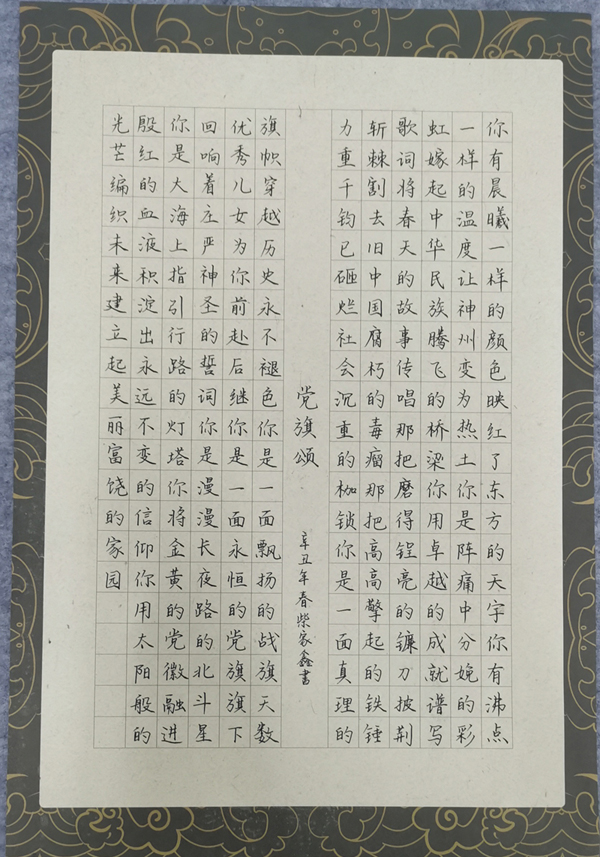 你有晨曦一样的颜色映红了东方的天字你有沸点
一样的温度让神州变为热土你是阵痛中分娩的彩
虹嫁起中华民族腾飞的桥梁你用卓越的成就谱写
歌词将春天的故事传唱那把磨得锃亮的镰刀披荆
斩棘割去旧中国腐朽的毒瘤那把高高擎起的铁锤
力重千钧已砸烂社会沉重的枷锁你是一面真理的
党旗颂
辛丑年春柴家鑫书
旗帜穿越历史永不褪色你是一面飘扬的战旗天数
优秀儿女为你前赴后继你是一面永恒的党旗旗下
回响着庄严神圣的誓词你是漫漫长夜路的北斗星
你是大海上指引行路的灯塔你将金黄的党徽融进
殷红的血液积淀出永远不变的信仰你用太阳般的
光芒编织未来建立起美丽富饶的家园